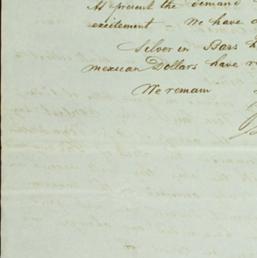 At present the demand
excitement – We have
Silver in Bars h
mexican Dollars have r
We remain